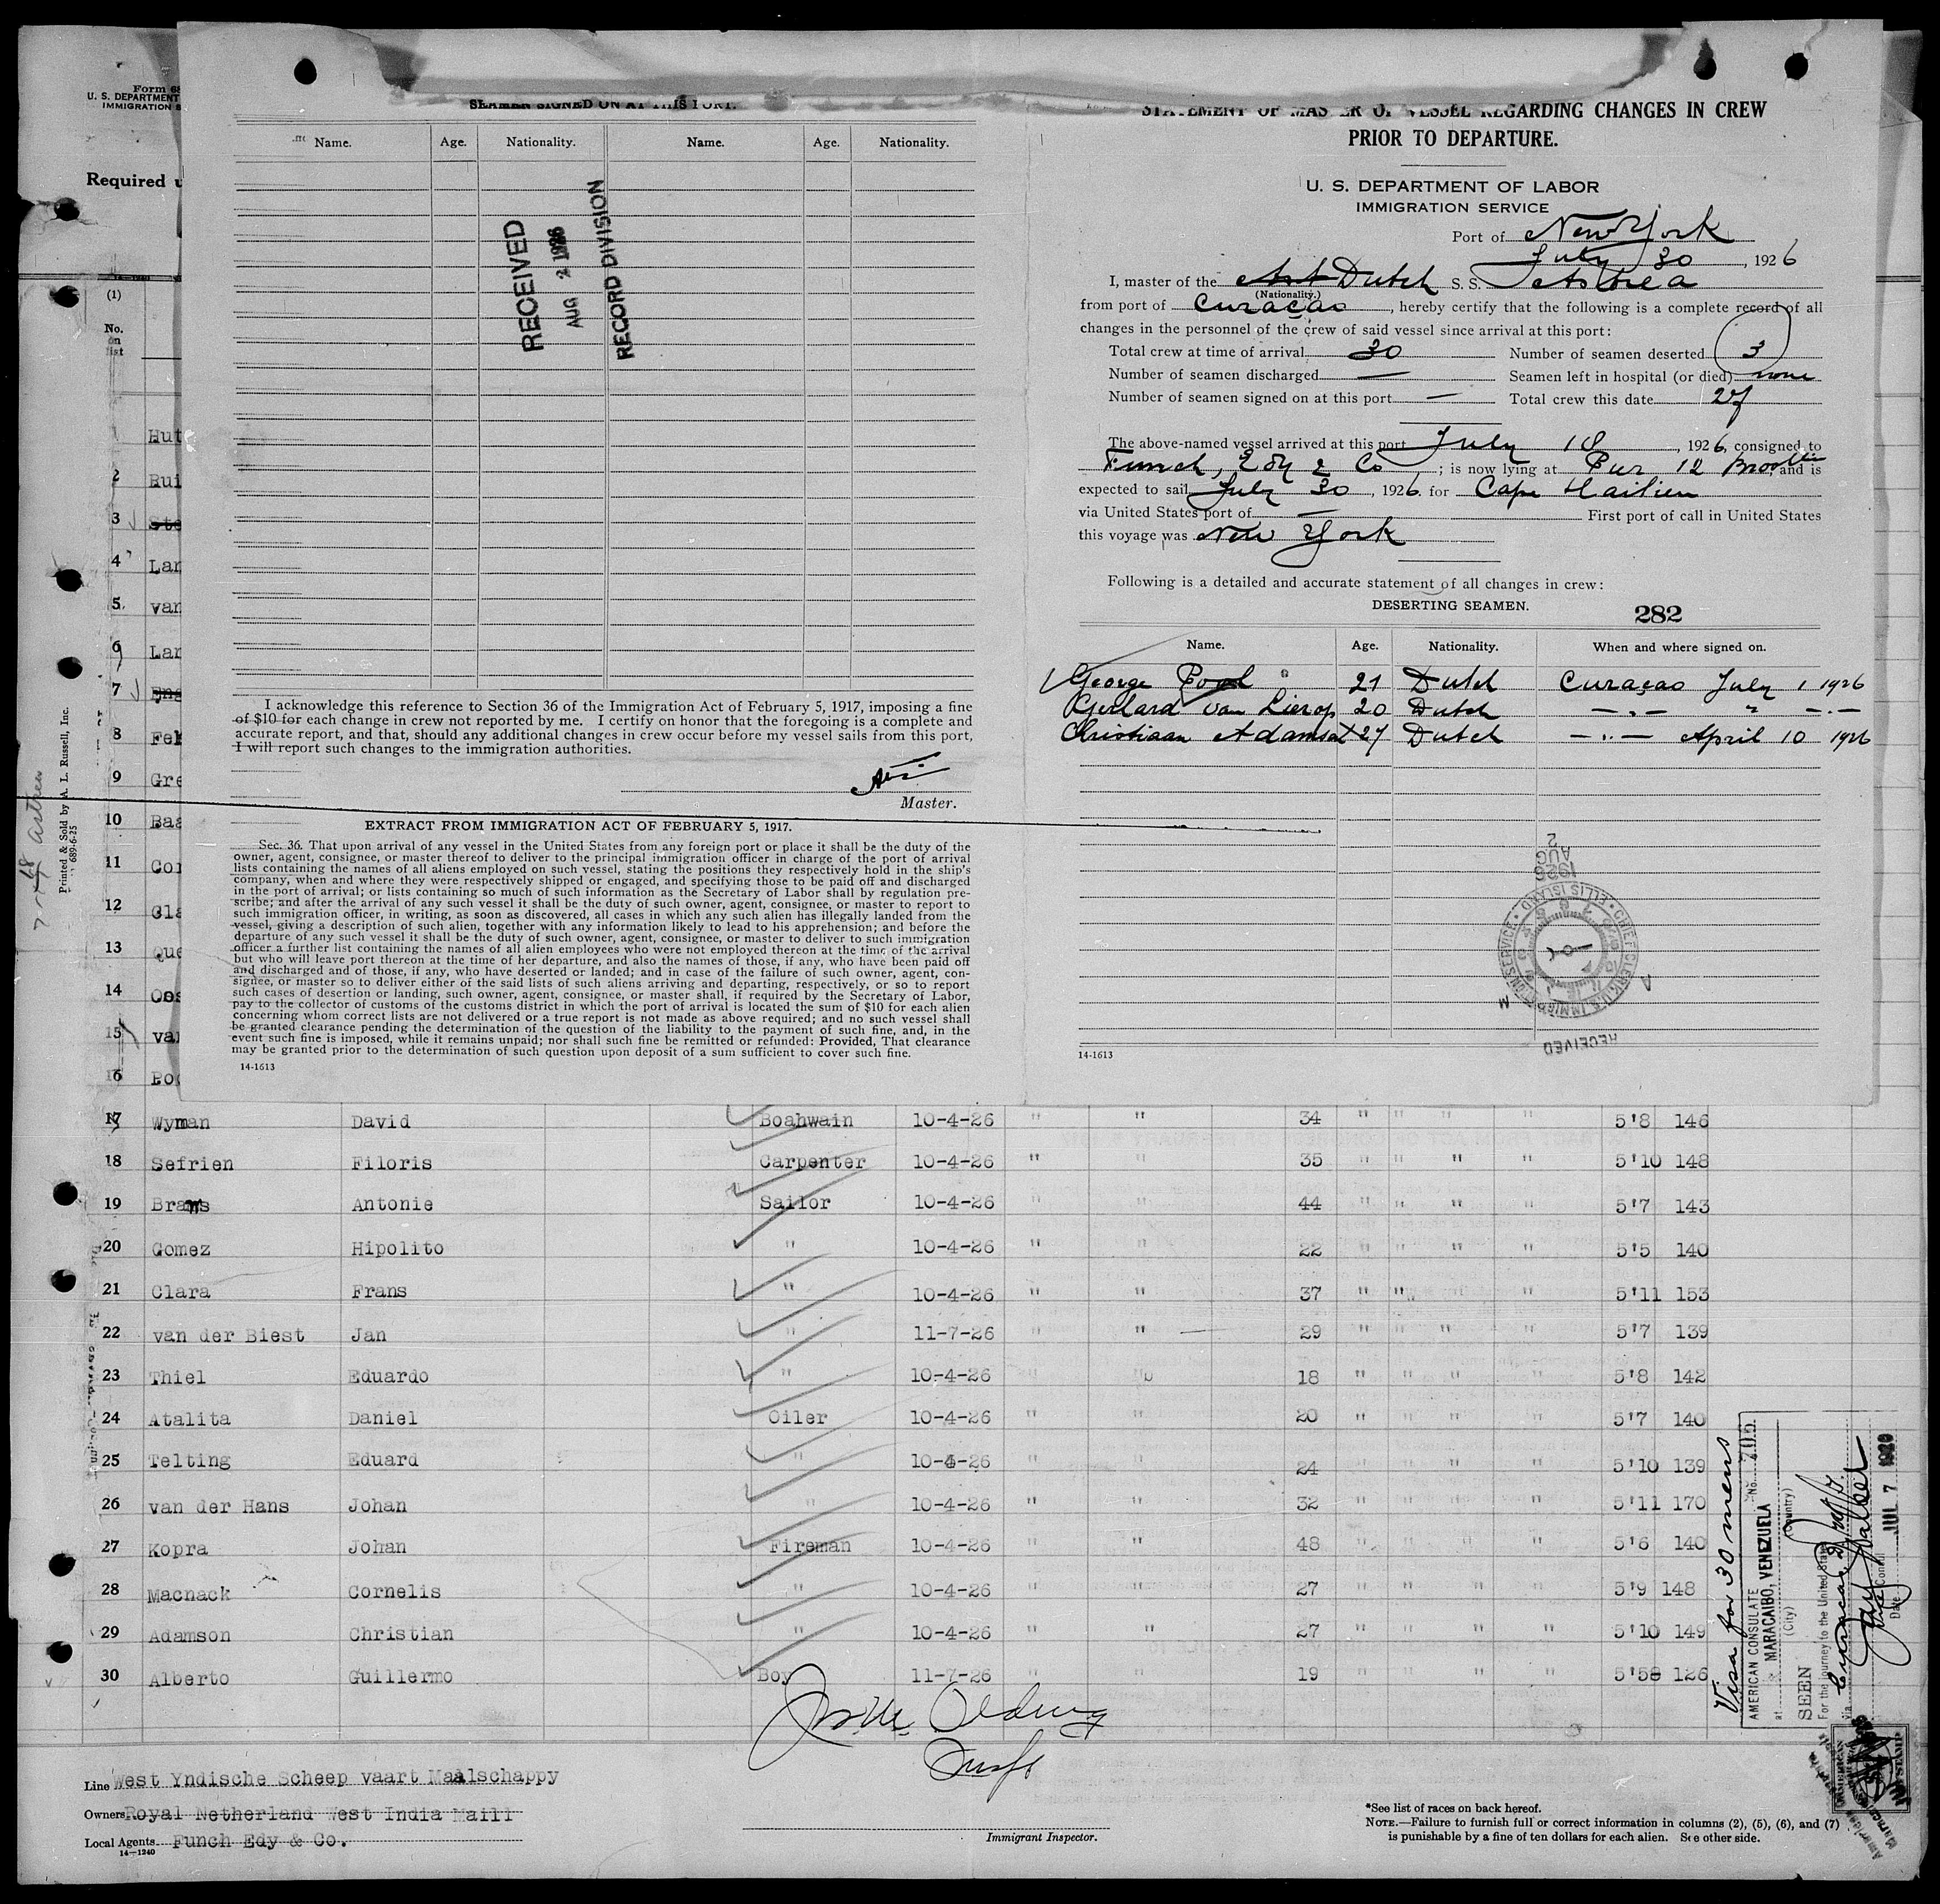 Form 68
U. S. DEPARTMENT
IMMIGRATION S
Required u
14-1240
(1)
No.
on
list
1 Hut
2 Rui
3 Ste
4 Lar
5 van
6 Lar
7 Ens
8 Fek
9 Gre
10 Bas
11 Cor
12 Cla
13 Que
14 Oos
15 van
16 Poo
Printed & Sold by A. L. Russell, Inc.
689-6-25
SEAMEN SIGNED ON AT THIS PORT.
Name. Age. Nationality. Name. Age. Nationality.
RECEIVED
AUG 2 1926
RECORD DIVISION
I acknowledge this reference to Section 36 of the Immigration Act of February 5, 1917, imposing a fine
of $10 for each change in crew not reported by me. I certify on honor that the foregoing is a complete and
accurate report, and that, should any additional changes in crew occur before my vessel sails from this port,
I will report such changes to the immigration authorities.
Master.
EXTRACT FROM IMMIGRATION ACT OF FEBRUARY 5, 1917.
Sec. 36. That upon arrival of any vessel in the United States from any foreign port or place it shall be the duty of the
owner, agent, consignee, or master thereof to deliver to the principal immigration officer in charge of the port of arrival
lists containing the names of all aliens employed on such vessel, stating the positions they respectively hold in the ship's
company, when and where they were respectively shipped or engaged, and specifying those to be paid off and discharged
in the port of arrival; or lists containing so much of such information as the Secretary of Labor shall by regulation pre-
scribe; and after the arrival of any such vessel it shall be the duty of such owner, agent, consignee, or master to report to
such immigration officer, in writing, as soon as discovered, all cases in which any such alien has illegally landed from the
vessel, giving a description of such alien, together with any information likely to lead to his apprehension; and before the
departure of any such vessel it shall be the duty of such owner, agent, consignee, or master to deliver to such immigration
officer a further list containing the names of all alien employees who were not employed thereon at the time of the arrival
but who will leave port thereon at the time of her departure, and also the names of those, if any, who have been paid off
and discharged and of those, if any, who have deserted or landed; and in case of the failure of such owner, agent, con-
signee, or master so to deliver either of the said lists of such aliens arriving and departing, respectively, or so to report
such cases of desertion or landing, such owner, agent, consignee, or master shall, if required by the Secretary of Labor,
pay to the collector of customs of the customs district in which the port of arrival is located the sum of $10 for each alien
concerning whom correct lists are not delivered or a true report is not made as above required; and no such vessel shall
be granted clearance pending the determination of the question of the liability to the payment of such fine, and, in the
event such fine is imposed, while it remains unpaid; nor shall such fine be remitted or refunded: Provided, That clearance
may be granted prior to the determination of such question upon deposit of a sum sufficient to cover such fine.
14-1613
STATEMENT OF MASTER OF VESSEL REGARDING CHANGES IN CREW
PRIOR TO DEPARTURE.
U. S. DEPARTMENT OF LABOR
IMMIGRATION SERVICE
Port of New York
July 30, 1926
I, master of the Dutch S. S. Astrea
(Nationality.)
from port of Curaçao, hereby certify that the following is a complete record of all
changes in the personnel of the crew of said vessel since arrival at this port:
Total crew at time of arrival 30 Number of seamen deserted 3
Number of seamen discharged — Seamen left in hospital (or died) none
Number of seamen signed on at this port — Total crew this date 27
The above-named vessel arrived at this port July 18, 1926, consigned to
Funch, Edy & Co; is now lying at Pier 12 Brooklin and is
expected to sail July 30, 1926. for Cape Haitien
via United States port of — First port of call in United States
this voyage was New York
Following is a detailed and accurate statement of all changes in crew:
DESERTING SEAMEN.
282
Name. Age. Nationality. When and where signed on.
George Pool 21 Dutch Curaçao July 1 1926
Gerhard van Lierop 20 Dutch —„— " —„—
Christiaan Adamson 27 Dutch —„— April 10 1926
RECEIVED
CHIEF CLERK, U.S. IMMIGRATION SERVICE • ELLIS ISLAND
1926 AUG 2
14-1613
17 Wyman David Boahwain 10-4-26 " " 34 " " " " 5'8 146
18 Sefrien Filoris Carpenter 10-4-26 " " 35 " " " " 5'10 148
19 Brams Antonie Sailor 10-4-26 " " 44 " " " " 5'7 143
20 Gomez Hipolito " 10-4-26 " " 22 " " " " 5'5 140
21 Clara Frans " 10-4-26 " " 37 " " " " 5'11 153
22 van der Biest Jan " 11-7-26 " " 29 " " " " 5'7 139
23 Thiel Eduardo " 10-4-26 " " 18 " " " " 5'8 142
24 Atalita Daniel Oiler 10-4-26 " " 20 " " " " 5'7 140
25 Telting Eduard " 10-4-26 " " 24 " " " " 5'10 139
26 van der Hans Johan " 10-4-26 " " 32 " " " " 5'11 170
27 Kopra Johan Fireman 10-4-26 " " 48 " " " " 5'6 140
28 Macnack Cornelis " 10-4-26 " " 27 " " " " 5'9 148
29 Adamson Christian " 10-4-26 " " 27 " " " " 5'10 149
30 Alberto Guillermo Boy 11-7-26 " " 19 " " " " 5'58 126
Visa for 30 mens
AMERICAN CONSULATE No. 705
at MARACAIBO, VENEZUELA
(City) (Country)
SEEN
For the journey to the United States
via Curacao
Vice Consul
Date JUL 7
Line West Yndische Scheep vaart Maalschappy
Owners Royal Netherland West India Maill
Local Agents Funch Edy & Co.
14-1240
Immigrant Inspector.
*See list of races on back hereof.
NOTE.—Failure to furnish full or correct information in columns (2), (5), (6), and (7)
is punishable by a fine of ten dollars for each alien. See other side.